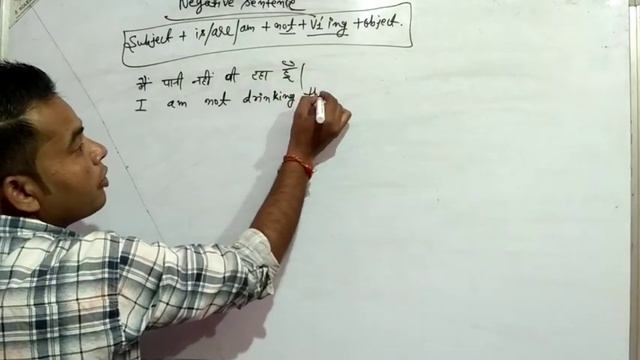 Negative sentence
Subject + is/are/am + not + V1 ing + object.
मैं पानी नहीं पी रहा हूँ।
I am not drinking